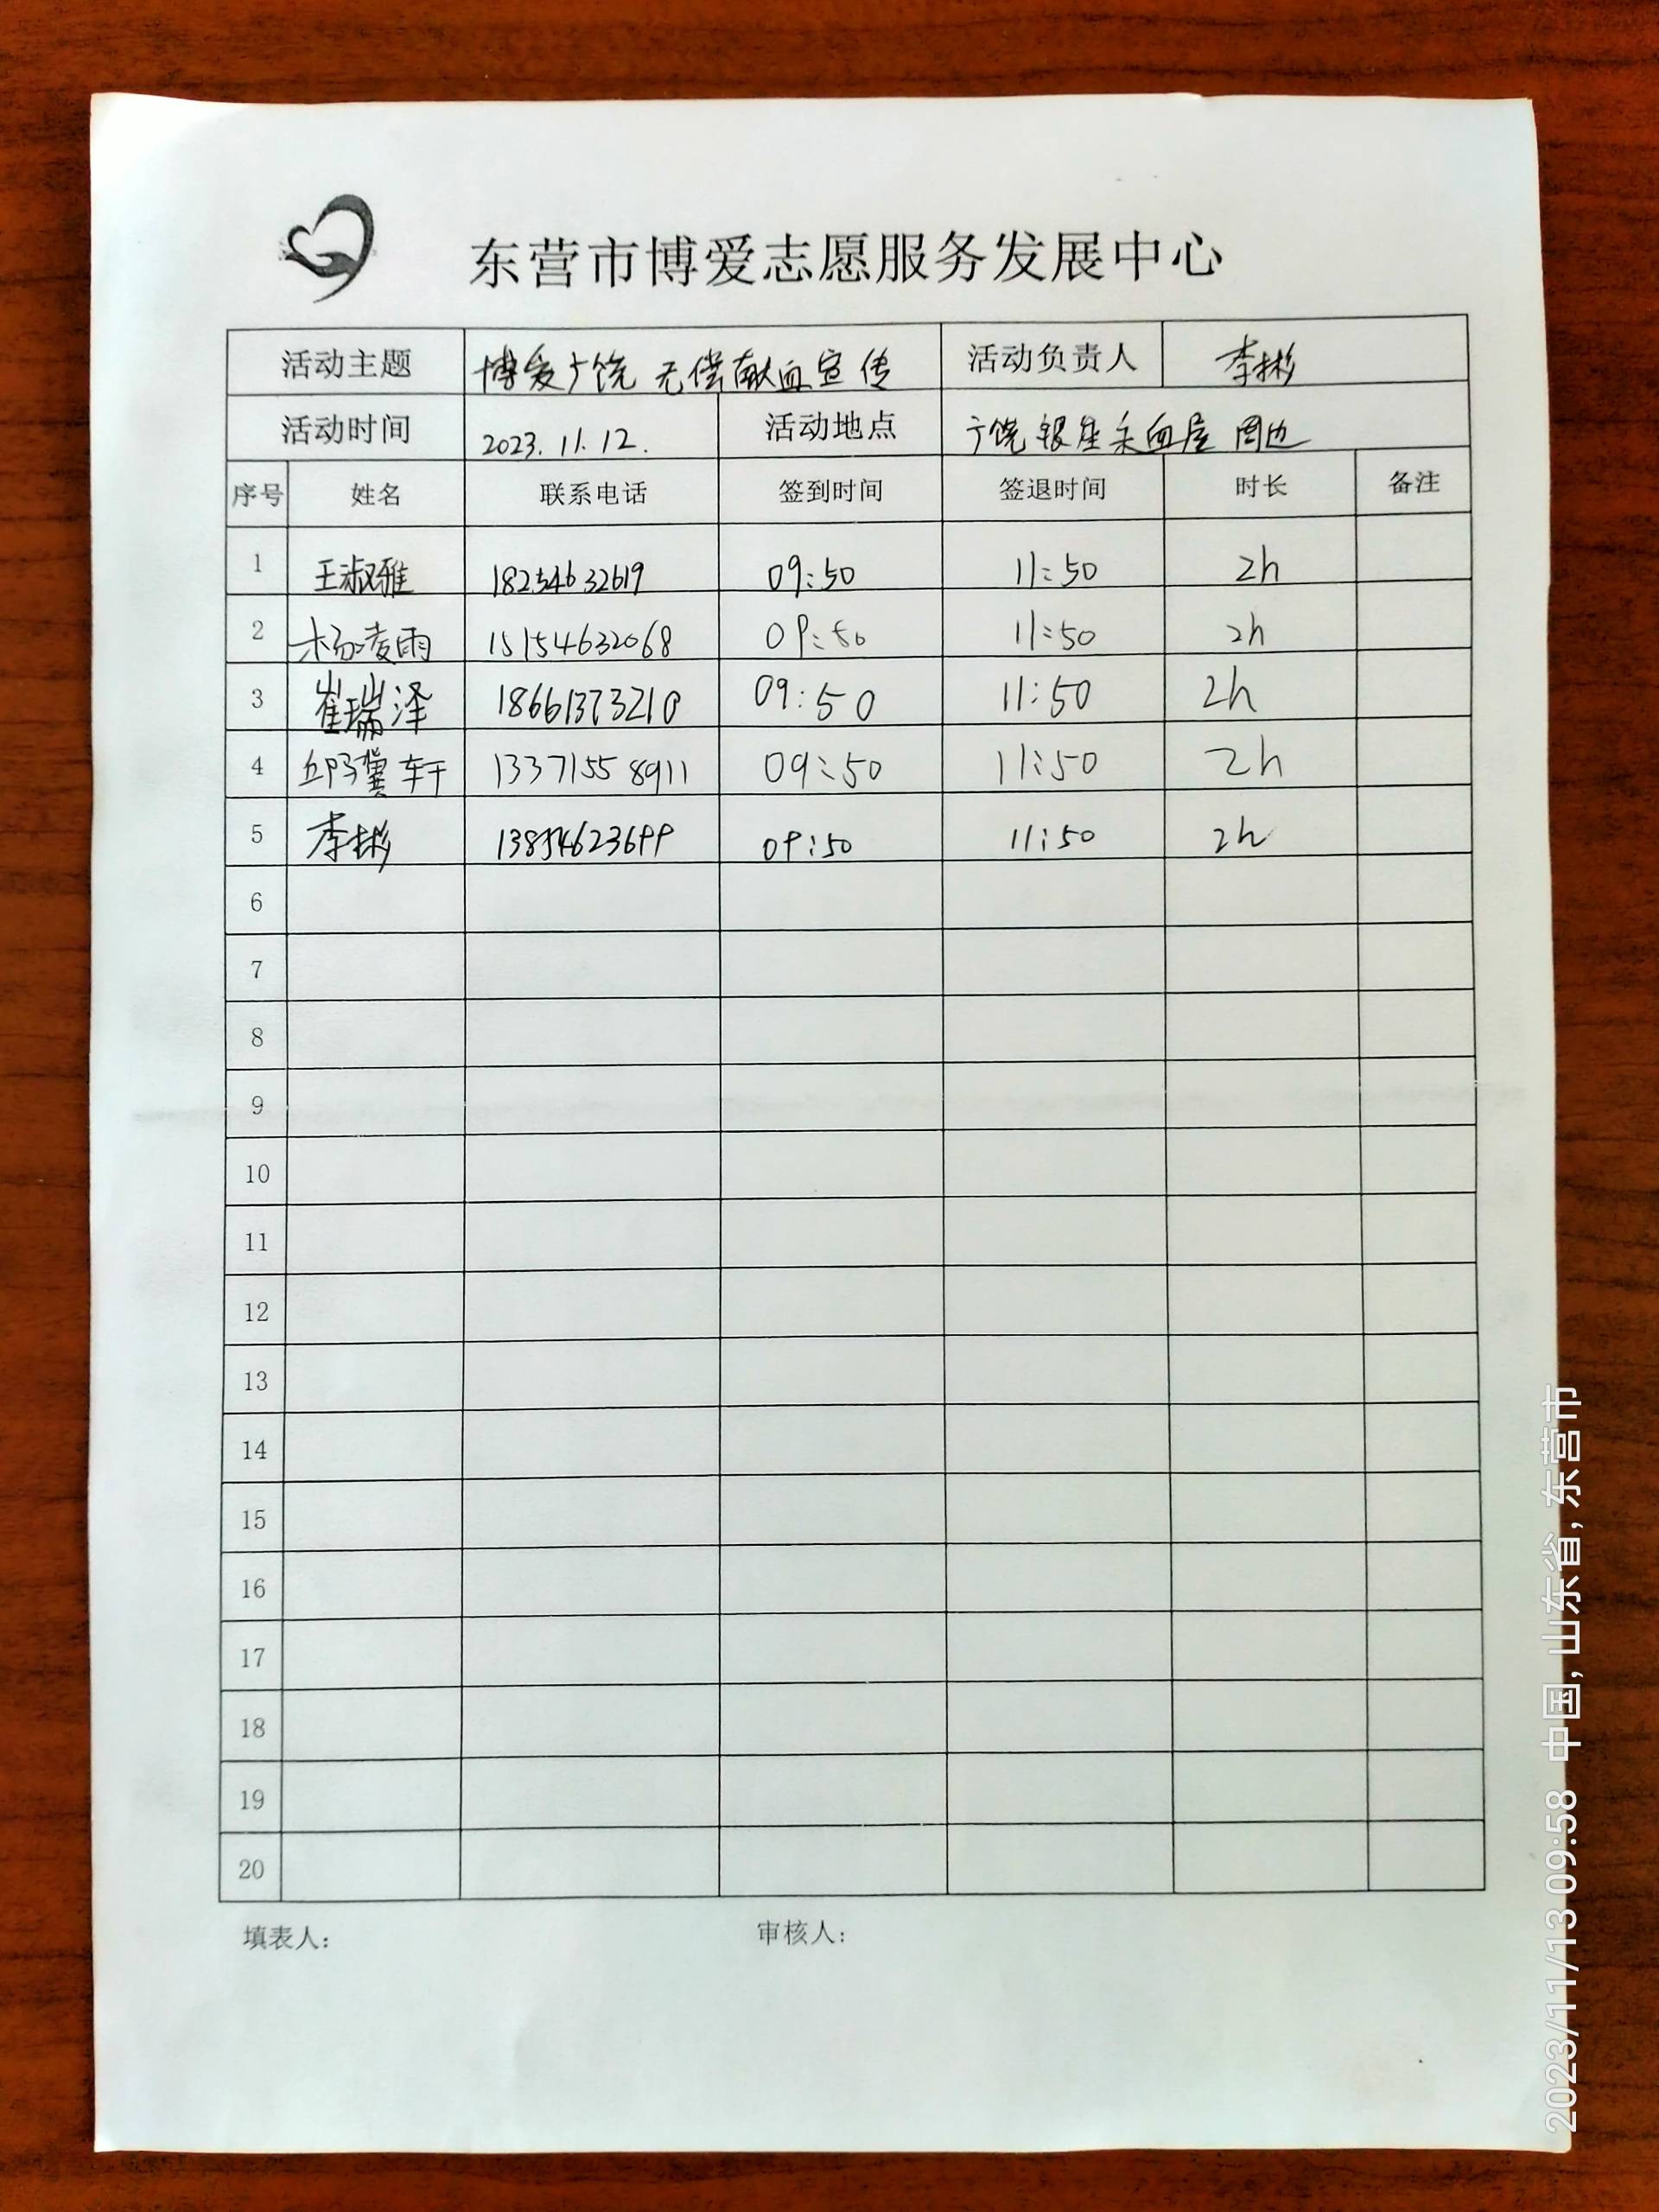 东营市博爱志愿服务发展中心
活动主题 博爱广饶 无偿献血宣传 活动负责人 李彬
活动时间 2023.11.12. 活动地点 广饶银座采血屋周边
序号 姓名 联系电话 签到时间 签退时间 时长 备注
1 王淑雅 18254632619 09:50 11:50 2h
2 杨凌雨 15154632068 09:50 11:50 2h
3 崔瑞泽 18661373210 09:50 11:50 2h
4 邱子冀轩 13371558911 09:50 11:50 2h
5 李彬 13854623699 09:50 11:50 2h
6
7
8
9
10
11
12
13
14
15
16
17
18
19
20
填表人： 审核人：
2023/11/13 09:58 中国, 山东省, 东营市